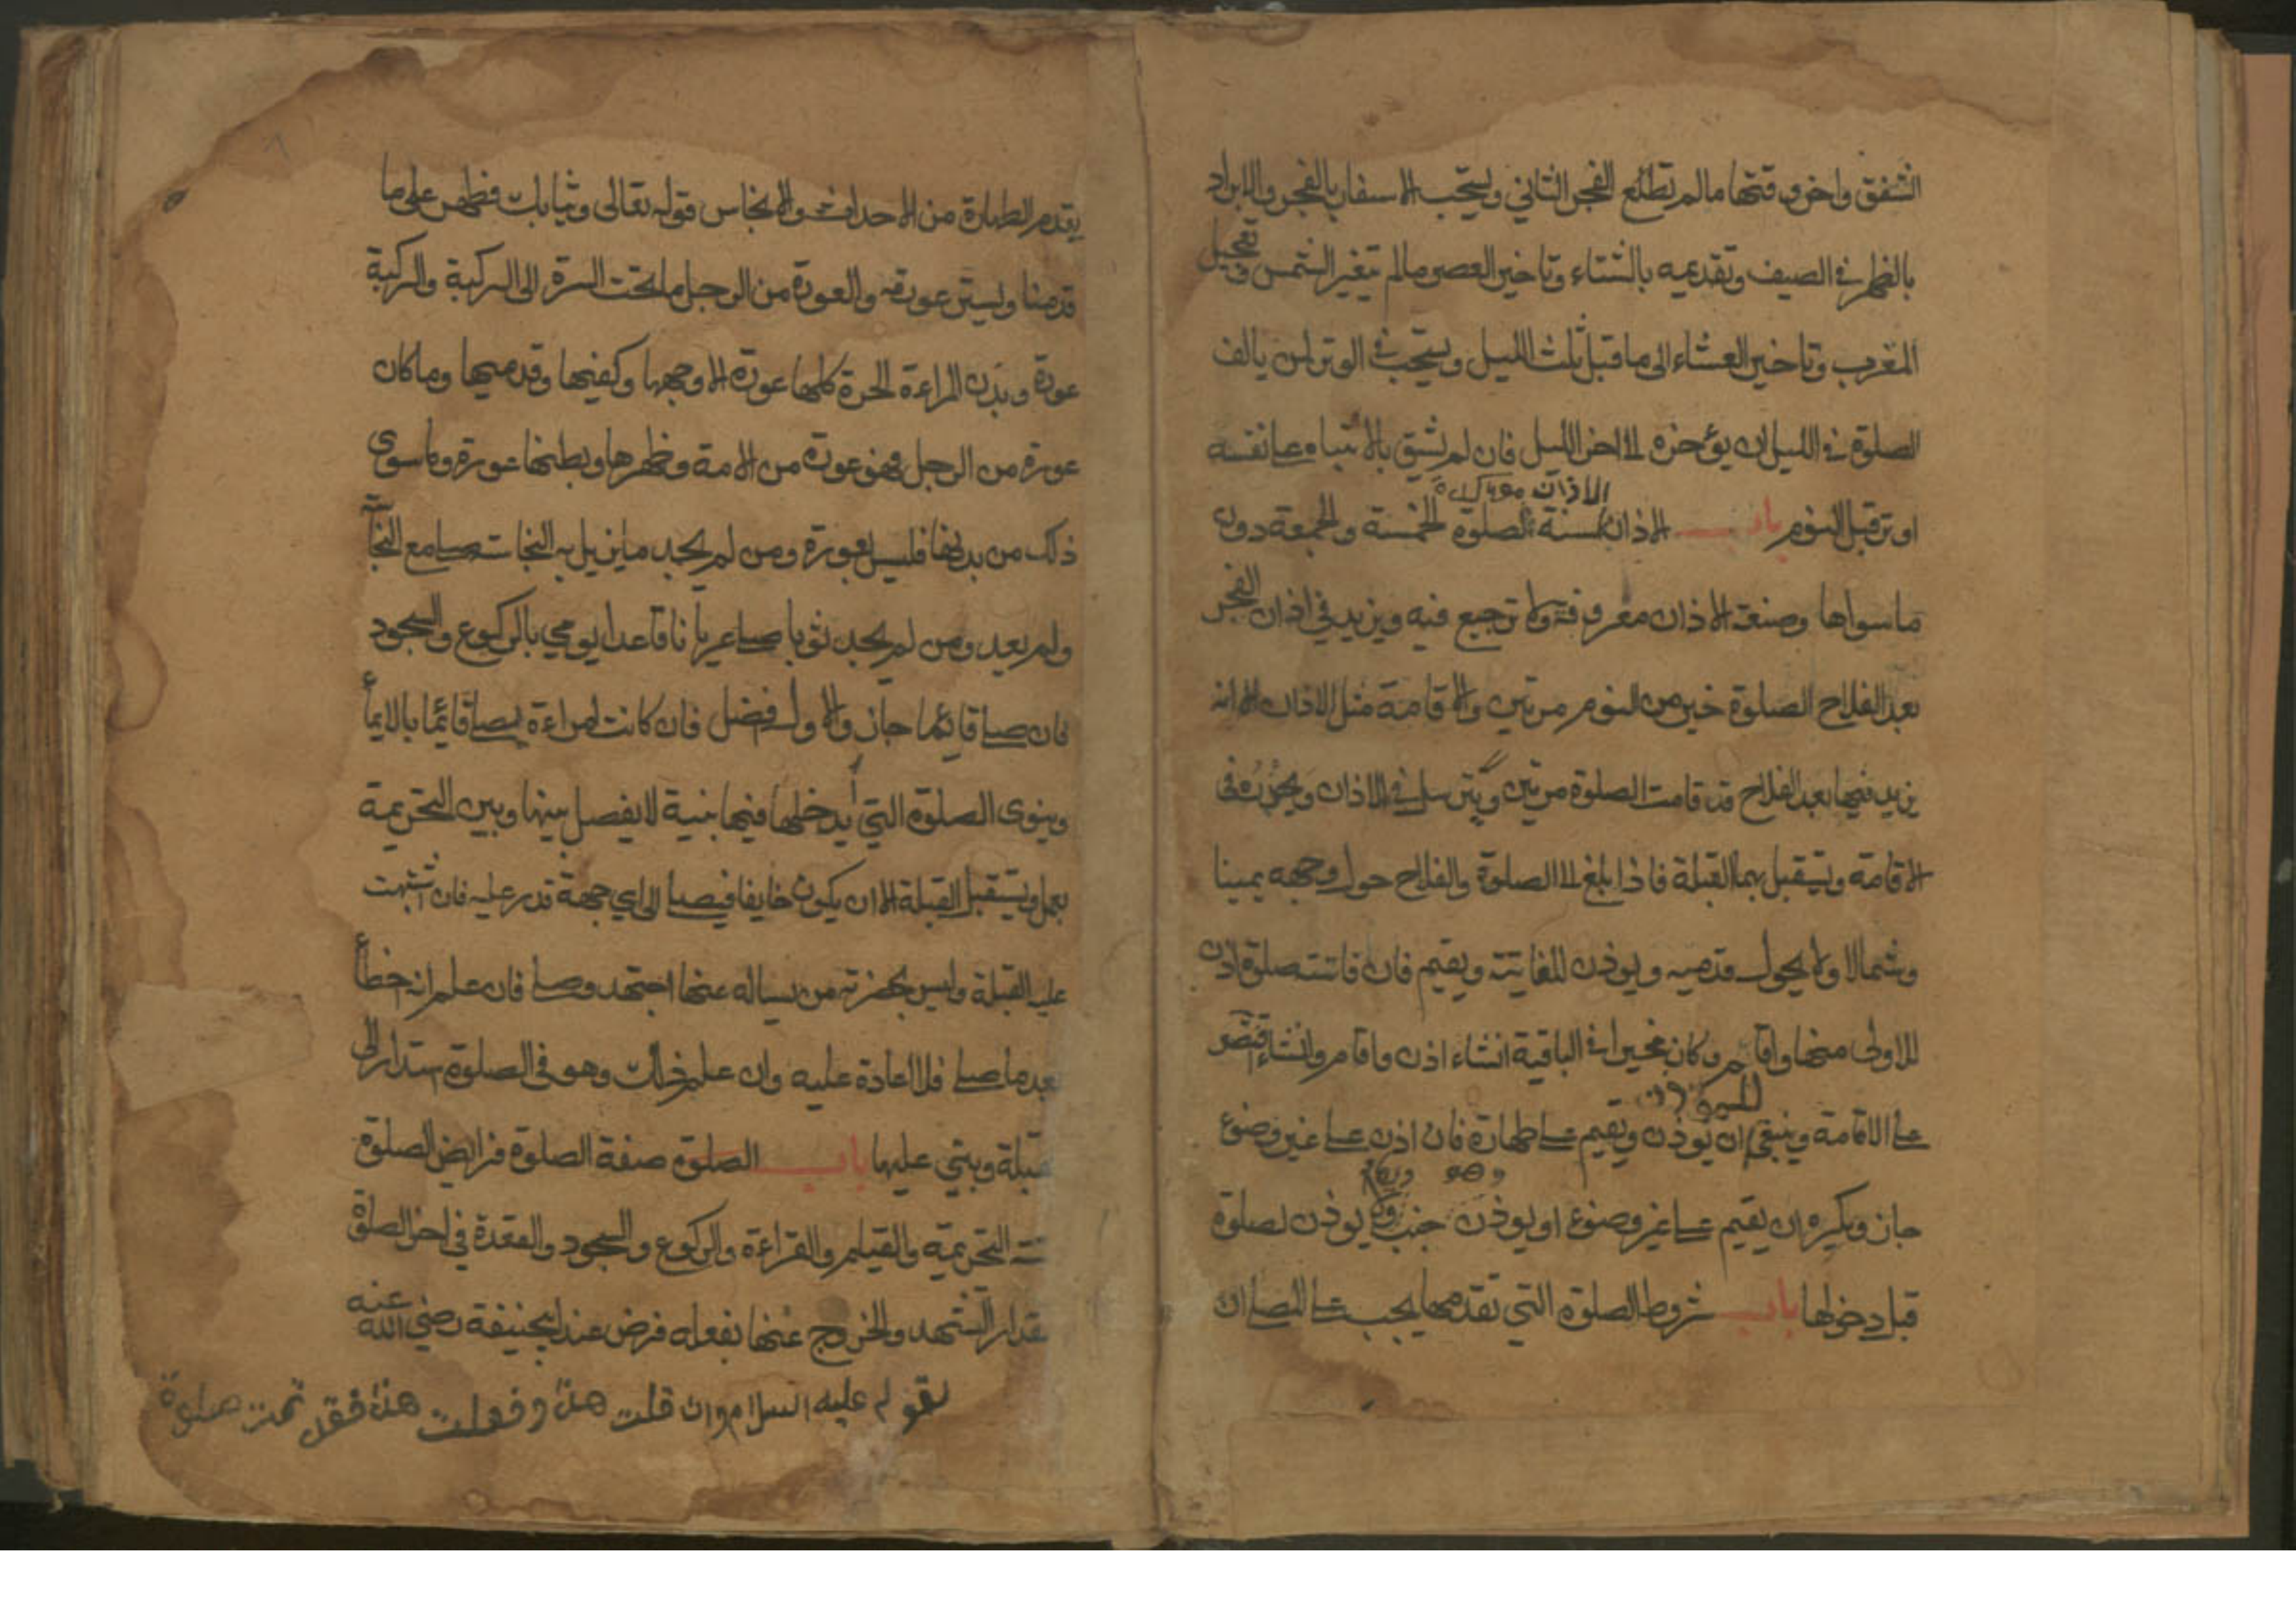 الشفق واخر وقتها مالم تطلع الفجر الثاني ويستحب الاسفار بالفجر والابراد
بالظهر في الصيف وتقديمه بالشتاء وتاخير العصر مالم تتغير الشمس وتعجيل
المغرب وتاخير العشاء الى ما قبل ثلث الليل ويستحب في الوتر لمن يالف
الصلوة في الليل ان يؤخره الى اخر الليل فان لم يثق بالانتباه على نفسه
اوتر قبل النوم باب الاذان سنة للصلوة الخمسة والجمعة دون
ما سواها وصفة الاذان معروفة ولا ترجيع فيه ويزيد في اذان الفجر
بعد الفلاح الصلوة خير من النوم مرتين والاقامة مثل الاذان الا انه
يزيد فيها بعد الفلاح قد قامت الصلوة مرتين ويترسل في الاذان ويحدر في
الاقامة ويستقبل بهما القبلة فاذا بلغ الى الصلوة والفلاح حول وجهه يمينا
وشمالا ولا يحول قدميه ويوذن للفايتة ويقيم فان فاتته صلوة اذن
للاولى منها واقام وكان مخيرا في الباقية انشاء اذن واقام وانشاء اقتصر
على الاقامة وينبغي ان يوذن ويقيم على طهارة فان اذن على غير وضوء
جاز ويكره ان يقيم على غير وضوء او يوذن وهو جنب ولا يوذن لصلوة
قبل دخولها باب شروط الصلوة التي تقدمها يجب على المصلي ان
يقدم الطهارة من الاحداث والانجاس قوله تعالى وثيابك فطهر على ما
قدمنا ويستر عورته والعورة من الرجل ما تحت السرة الى الركبة والركبة
عورة وبدن المراءة الحرة كلها عورة الا وجهها وكفيها وقدميها وما كان
عورة من الرجل فهو عورة من الامة وظهرها وبطنها عورة وما سوى
ذلك من بدنها فليس بعورة ومن لم يجد ما يزيل به النجاسة صلى مع النجاسة
ولم يعيد ومن لم يجد ثوبا صلى عريانا قاعدا يومي بالركوع والسجود
فان صلى قائما جاز والاول افضل فان كانت امراءة يصلي قائما بالايماء
وينوى الصلوة التي يدخلها فيها بنية لا يفصل بينها وبين التحريمة
بعمل ويستقبل القبلة الا ان يكون خايفا فيصلي الى اي جهة قدر عليه فان اشتبهت
عليه القبلة وليس بحضرته من يساله عنها اجتهد وصلى فان علم انه اخطأ
بعد ما صلى فلا اعادة عليه وان علم ذلك وهو في الصلوة استدار الى
القبلة وبنى عليها باب الصلوة صفة الصلوة فرايض الصلوة
ستة التحريمة والقيام والقراءة والركوع والسجود والقعدة في اخر الصلوة
مقدار التشهد والخروج عنها بفعله فرض عند ابيحنيفة رضي الله عنه
لقوله عليه السلام وان قلت هذا وفعلت هذا فقد تمت صلوة